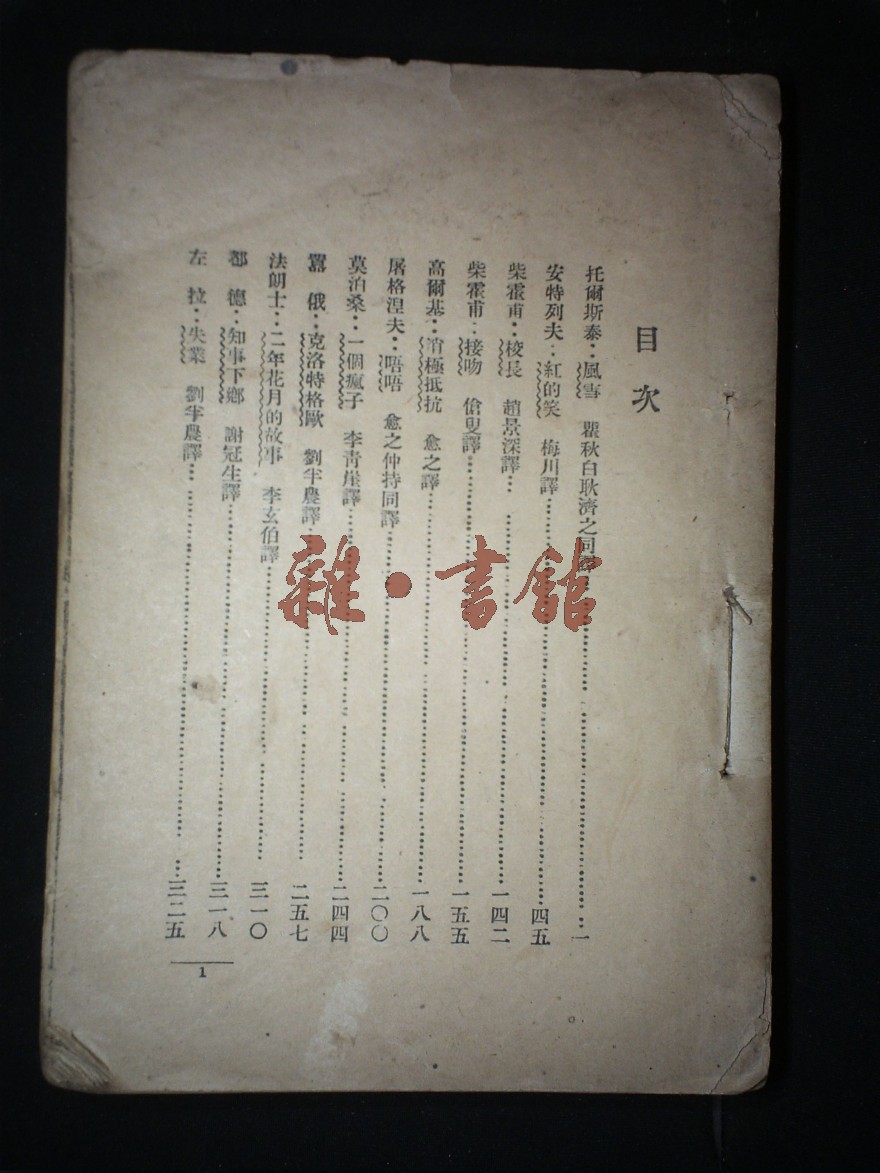 目次
托爾斯泰：風雪 瞿秋白耿濟之同譯 一
安特列夫：紅的笑 梅川譯 四五
柴霍甫：校長 趙景深譯 一四二
柴霍甫：接吻 傖叟譯 一五五
高爾基：消極抵抗 愈之譯 一八八
屠格涅夫：唔唔 愈之仲持同譯 二〇〇
莫泊桑：一個瘋子 李青崖譯 二四四
囂俄：克洛特格歐 劉半農譯 二五七
法朗士：二年花月的故事 李玄伯譯 三一〇
都德：知事下鄉 謝冠生譯 三一八
左拉：失業 劉半農譯 三二五
1
雜·書館